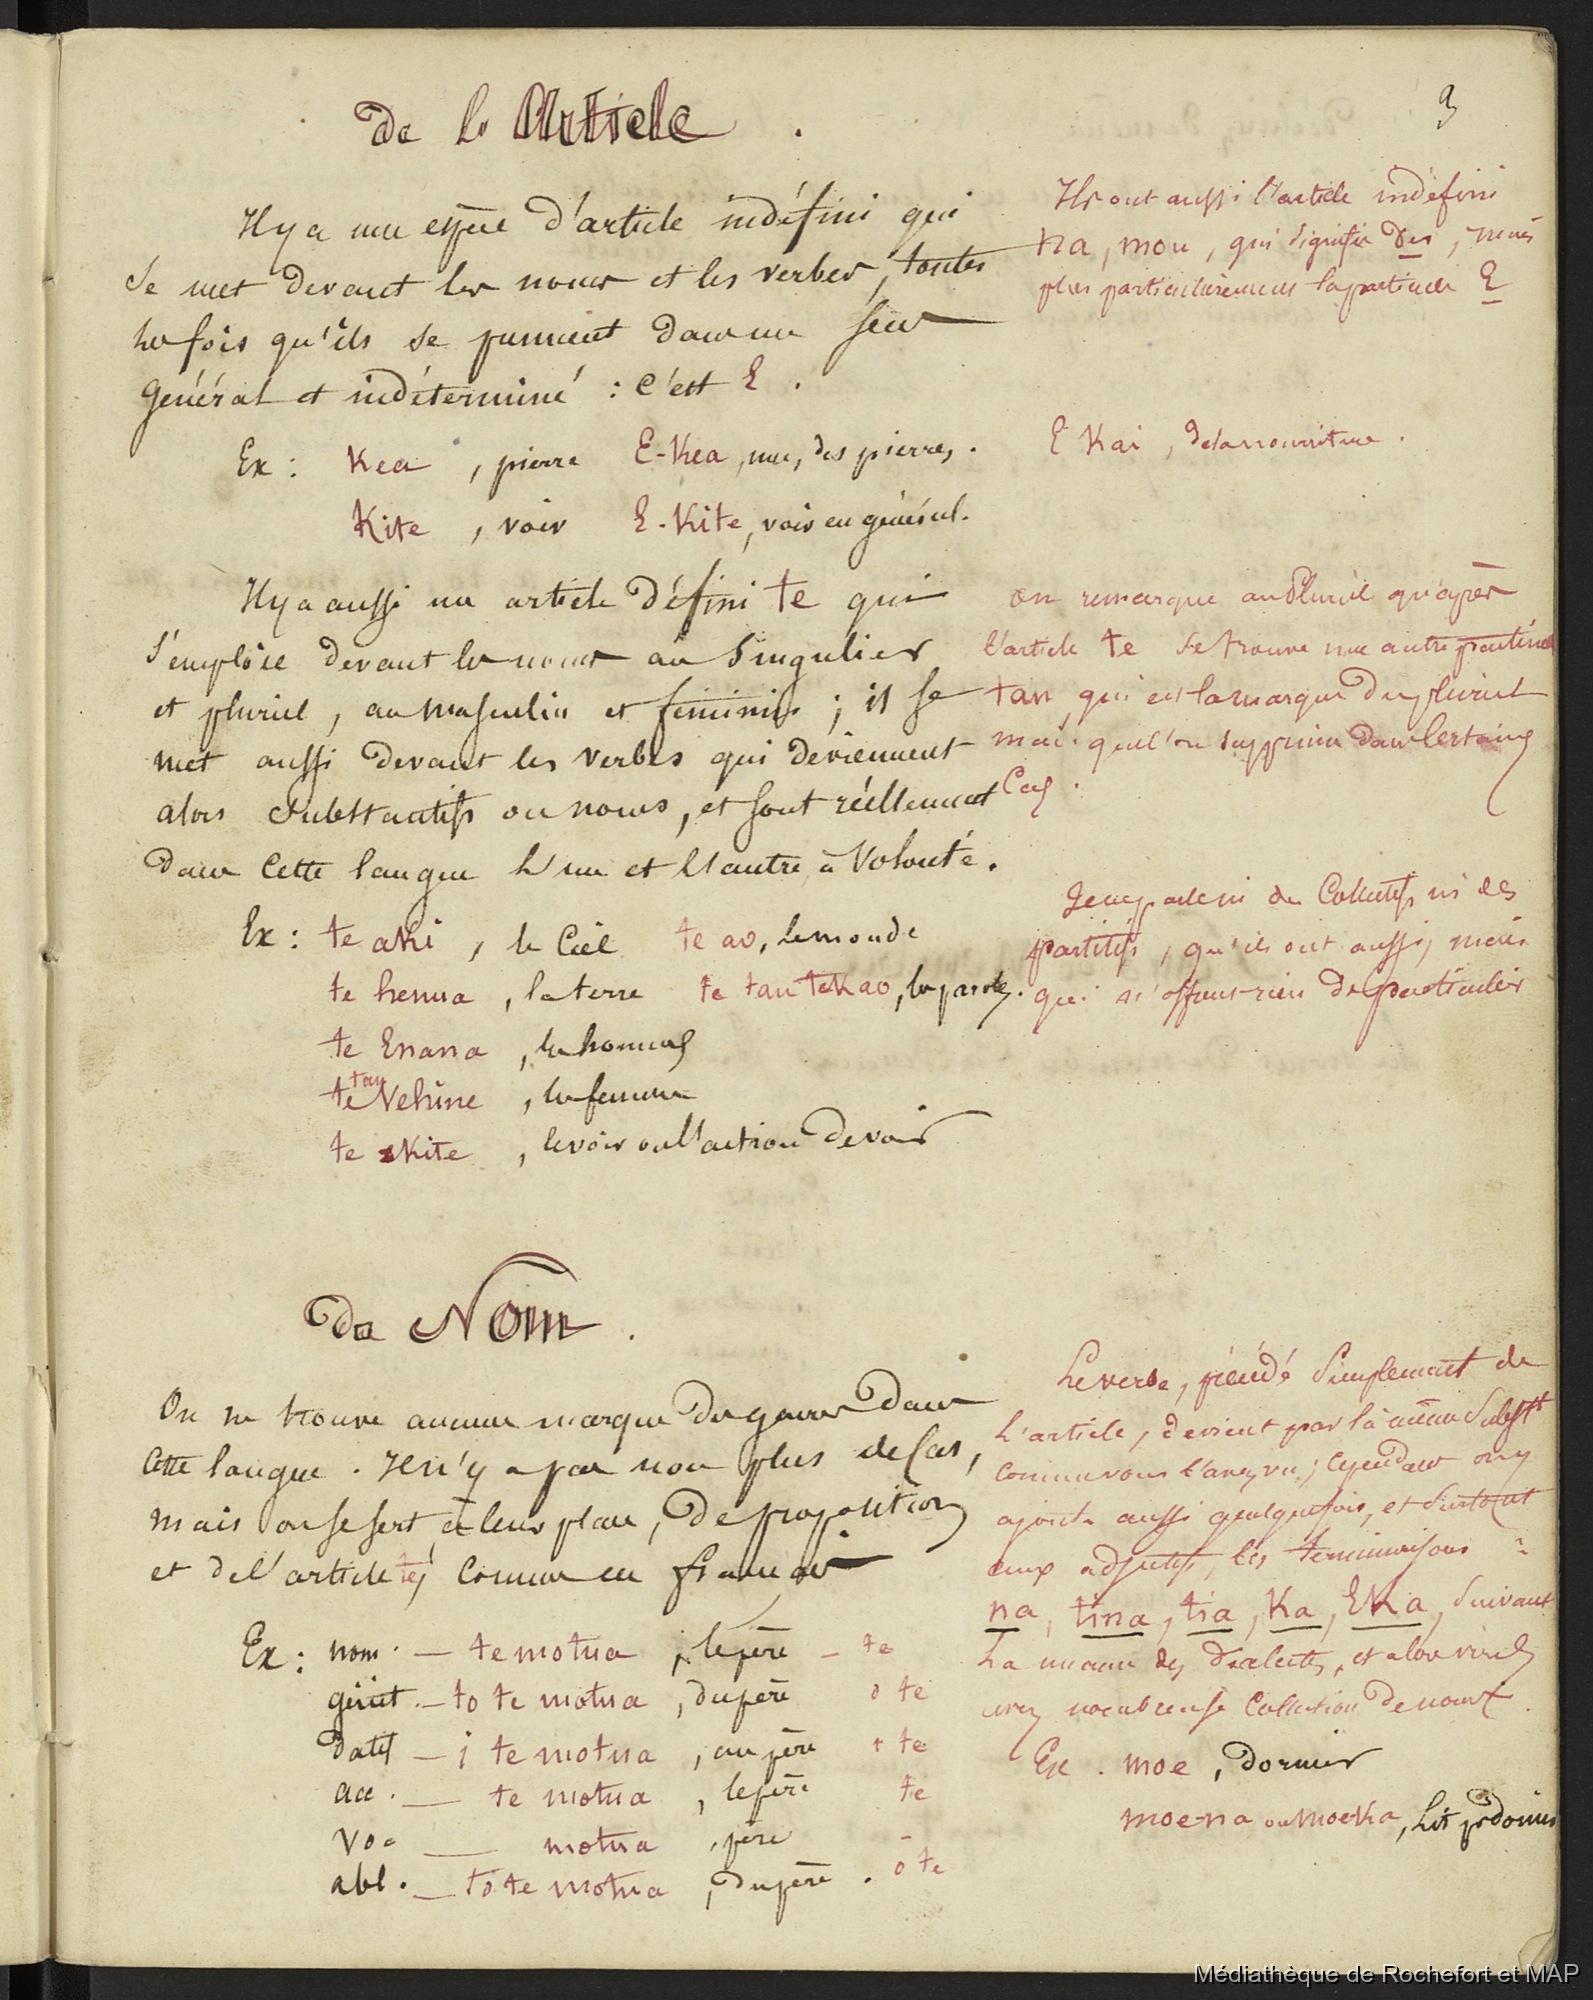 3
De l'Article.
Il y a une espèce d'article indéfini qui
se met devant les noms et les verbes, toutes
les fois qu'ils se prennent dans un sens
général et indéterminé : c'est E.
Ex : Kea, pierre E-Kea, une, des pierres.
Kite, voir E-Kite, voir en général.
Il y a aussi un article défini te qui
s'emploie devant les noms au singulier
et pluriel, au masculin et féminin ; il se
met aussi devant les verbes qui deviennent
alors substantifs ou noms, et sont réellement
dans cette langue l'un et l'autre à volonté.
Ex : te aki, le Ciel te ao, le monde
te henua, la terre te tau tekao, les paroles.
te Enana, les hommes
te tau Vehine, les femmes
te kite, le voir ou l'action de voir
Ils ont aussi l'article indéfini
na, mou, qui signifie Des, mais
plus particulièrement la particule E
E Kai, de la nourriture.
On remarque au Pluriel qu'après
l'article te se trouve une autre particule
tau, qui est la marque du pluriel
mais que l'on supprime dans certains
Cas.
Je ne parle ni des Collectifs ni des
partitifs, qu'ils ont aussi, mais
qui n'offrent rien de particulier
Du Nom.
On ne trouve aucune marque de genres dans
cette langue. Il n'y a pas non plus de Cas,
mais on se sert à leur place, de préposition
et de l'article te, comme en français
Ex : nom. — te motua, le père — te
génit. — to te motua, du père o te
datif — i te motua, au père i te
acc. — te motua, le père te
voc — motua, père —
abl. — to te motua, du père. o te
Le verbe, précédé simplement de
l'article, devient par là même Subst
comme vous l'avez vu ; cependant on y
ajoute aussi quelquefois, et surtout
aux adjectifs, les terminaisons :
na, tina, tia, Ka, EKa, suivant
la nuance des dialectes, et alors
nombreuse Collection de noms.
Ex. moe, dormir
moe-na ou moe-Ka, Lit pr dormir